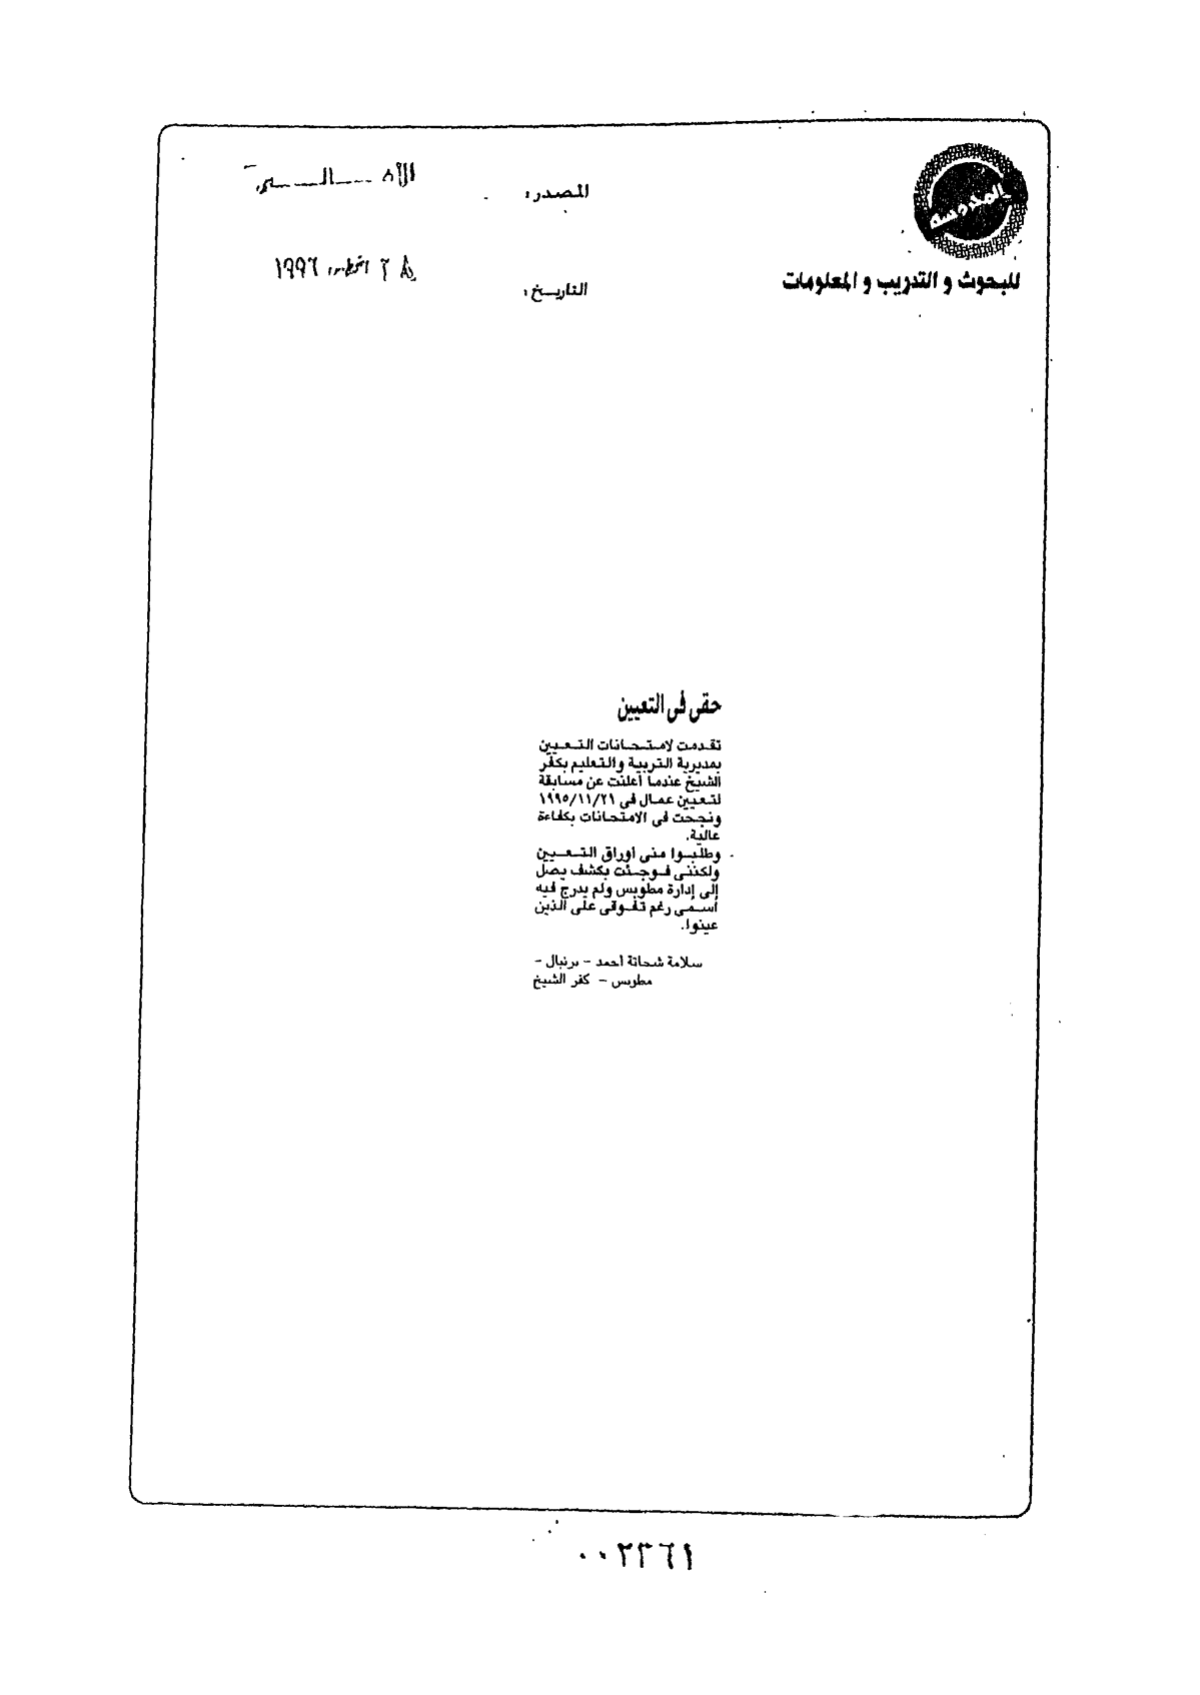 المحروسة
للبحوث و التدريب و المعلومات
المصدر:
التاريخ:
أغسطس ١٩٩٦
حقى فى التعيين
تقدمت لامتحانات التعيين
بمديرية التربية والتعليم بكفر
الشيخ عندما أعلنت عن مسابقة
لتعيين عمال فى ١٩٩٥/١١/٢١
ونجحت فى الامتحانات بكفاءة
عالية.
وطلبوا منى أوراق التعيين
ولكننى فوجئت بكشف يصل
إلى إدارة مطوبس ولم يدرج فيه
اسمى رغم تفوقى على الذين
عينوا.
سلامة شحاتة أحمد - برنبال -
مطوبس - كفر الشيخ